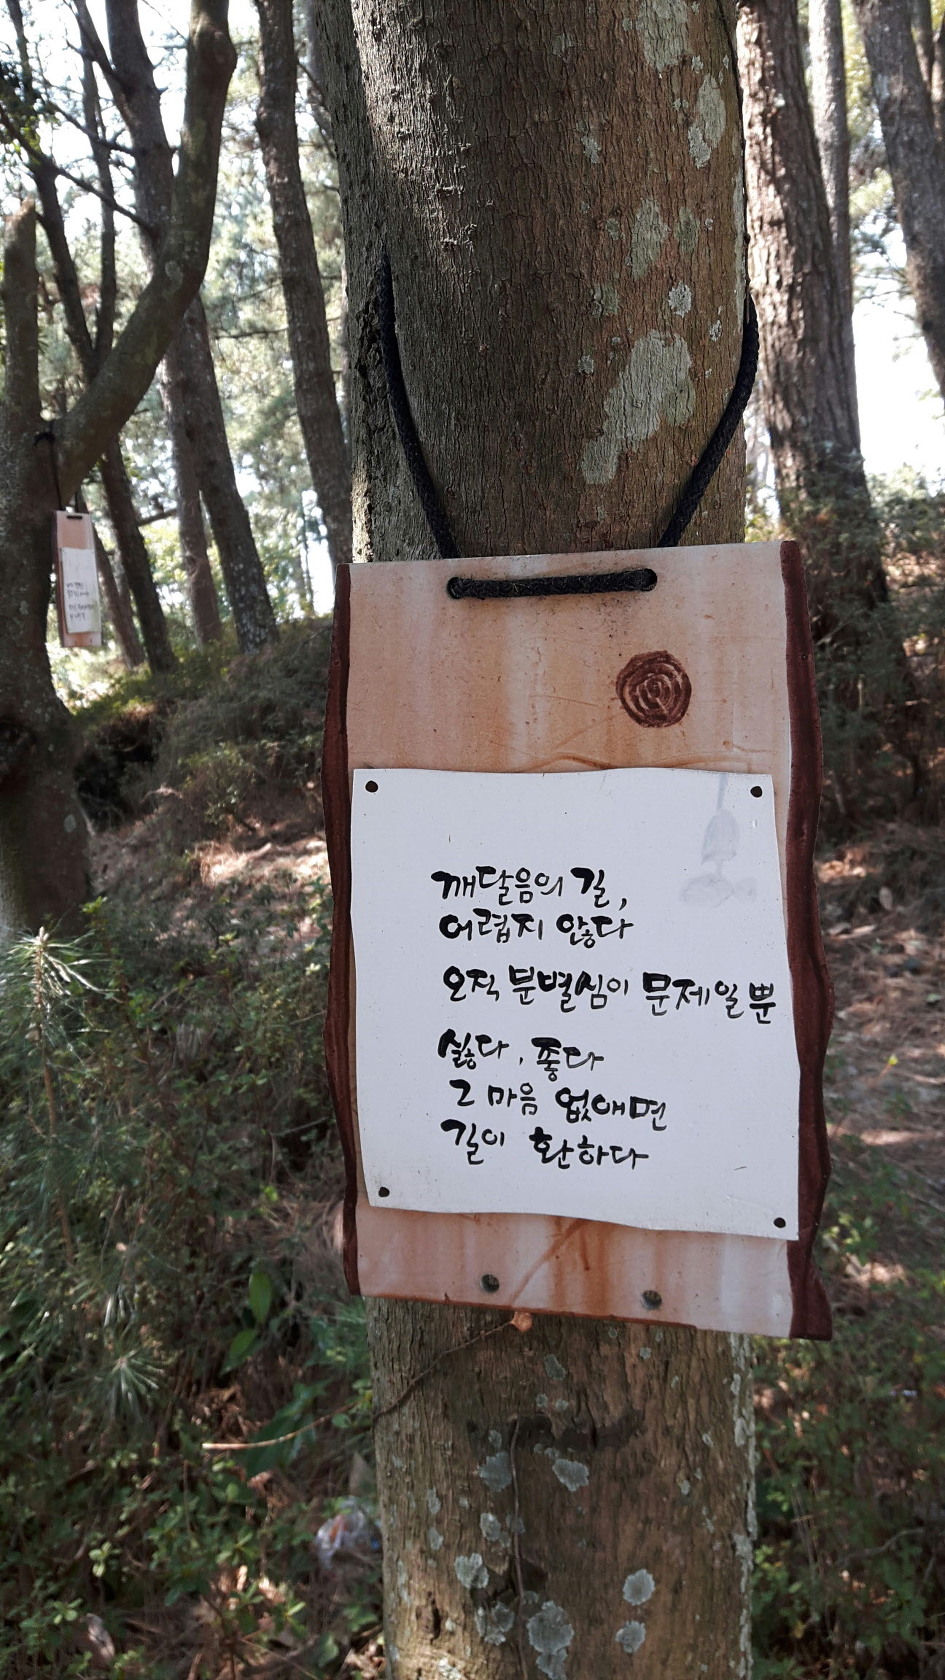 깨달음의 길,
어렵지 않다
오직 분별심이 문제일뿐
싫다, 좋다
그 마음 없애면
길이 환하다